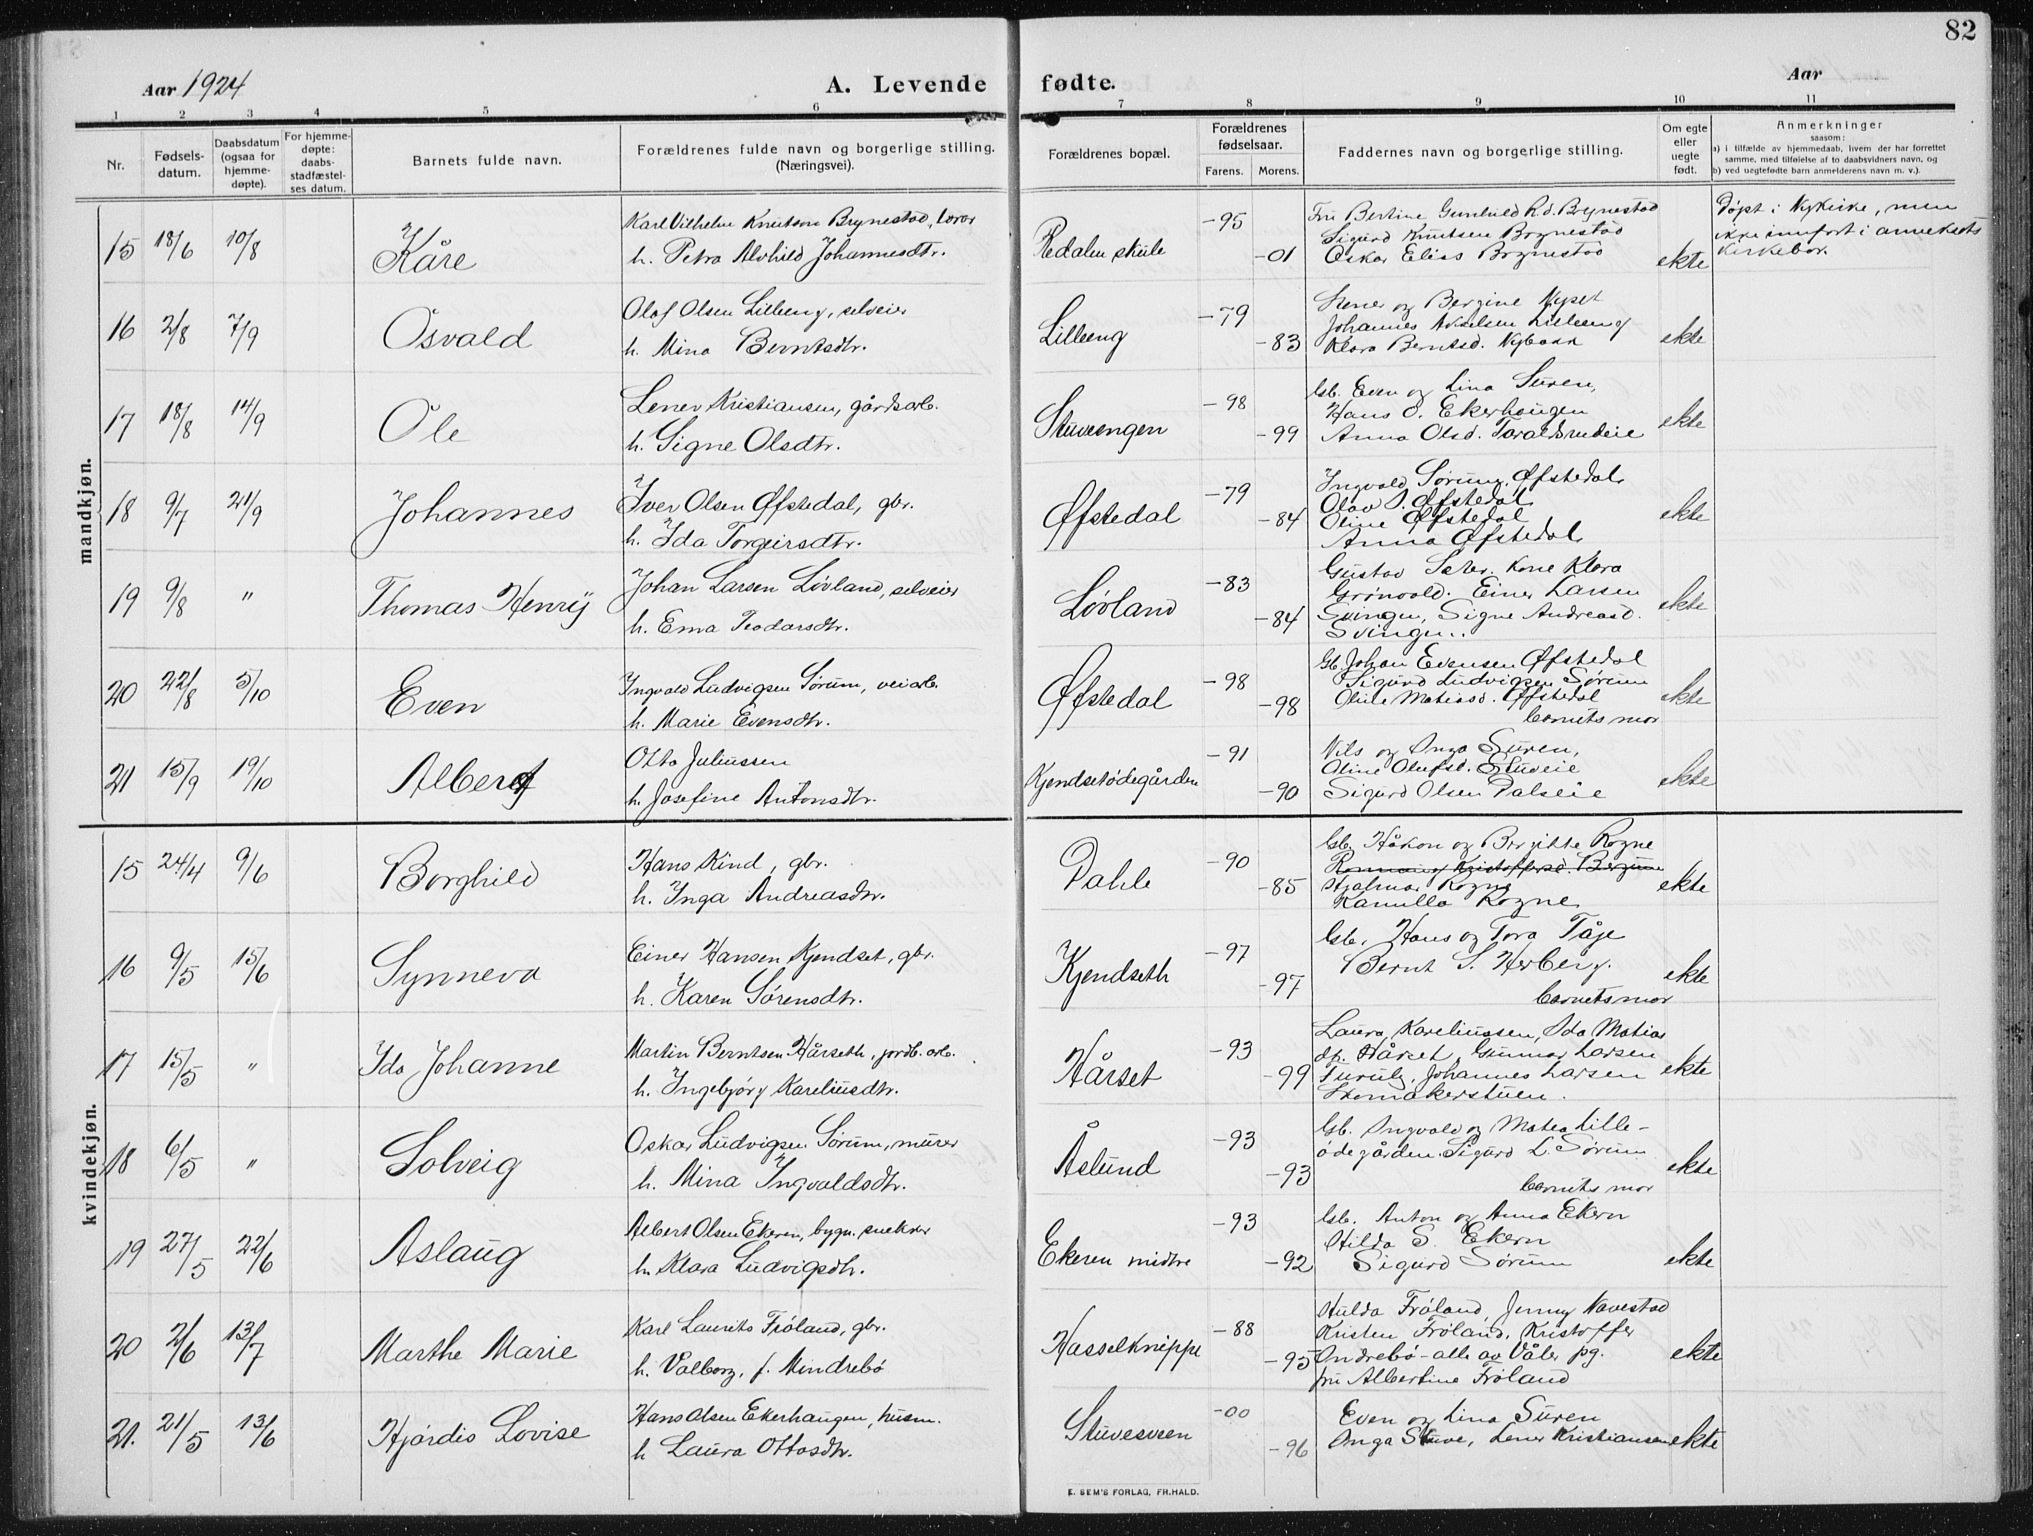 82
Aar 1924
A. Levende fødte.
Aar
1 2 3 4 5 6 7 8 9 10 11
Nr.
Fødsels-
datum.
Daabsdatum
(ogsaa for
hjemme-
døpte).
For hjemme-
døpte:
daabs-
stadfæstel-
ses datum.
Barnets fulde navn.
Forældrenes fulde navn og borgerlige stilling.
(Næringsvei).
Forældrenes bopæl.
Forældrenes
fødselsaar.
Farens. Morens.
Faddernes navn og borgerlige stilling.
Om egte
eller
uegte
født.
Anmerkninger
saasom:
a) i tilfælde av hjemmedaab, livem der har forrettet
samme, med tilføielse af to daabsvidners navn, og
b) ved uegtefødte barn anmelderens navn m. v.).
mandkjøn.
15 18/6 10/8 Kåre
Karl Vilhelm Knutsen Brynestad, lærer
h. Petra Alvhild Johannesdtr.
Redalen skule -95 -01
Fru Bertine Gunhild K.d. Brynestad
Sigurd Knutsen Brynestad
Oskar Elias Brynestad
ekte
Døpt i Nykirke, men
ikke innført i annekets
kirkebok.
16 2/8 7/9 Osvald
Olaf Olsen Lilleeng, selveier
h. Mina Berntsdtr.
Lilleeng -79 -83
Lener og Bergine Nyset
Johannes Akselsen Lilleeng
Klara Berntsd. Nybakk
ekte
17 18/8 14/9 Ole
Lener Kristiansen, gårdsarb.
h. Signe Olsdtr.
Stuveengen -98 -99
Gb. Even og Lina Suren,
Hans O. Ekerhaugen
Anna Olsd. Taraldsrudeie
ekte
18 9/7 21/9 Johannes
Iver Olsen Øfstedal, gbr.
h. Ida Torgeirsdtr.
Øfstedal -79 -84
Ingvald Sørum, Øfstedal
Olav I. Øfstedal
Oline Øfstedal
Anna Øfstedal
ekte
19 9/8 " Thomas Henry
Johan Larsen Løvland, selveier
h. Ema Teodorsdtr.
Løvland -83 -84
Gustav Sæter. Kone Klara
Grønvold. Einer Larsen
Svingen, Signe Andreasd.
Svingen.
ekte
20 22/8 5/10 Even
Ingvald Ludvigsen Sørum, veiarb.
h. Marie Evensdtr.
Øfstedal -98 -98
Gb. Johan Evensen Øfstedal
Sigurd Ludvigsen Sørum
Oline Matiasd. Øfstedal
barnets mor
ekte
21 15/9 19/10 Albert
Otto Juliussen
h. Josefine Antonsdtr.
Kjendsetødegården -91 -90
Nils og Inga Suren,
Oline Olufsd. Stuveie
Sigurd Olsen Dalseie
ekte
kvindekjøn.
15 24/4 9/6 Borghild
Hans Kind, gbr.
h. Inga Andreasdtr.
Dahle -90 -85
Gb. Håkon og Birgitte Rogne
Hjalmar Rogne
Kamilla Rogne
ekte
16 9/5 15/6 Synneva
Einer Hansen Kjendset, gbr.
h. Karen Sørensdtr.
Kjendseth -97 -97
Gb. Hans og Tora Tåje
Bernt S. Herberg.
barnets mor
ekte
17 15/5 " Ida Johanne
Martin Berntsen Hårseth, jordb. arb.
h. Ingebjørg Kareliusdtr.
Hårset -93 -99
Laura Kareliussen, Ida Matias
dtr. Hårset, Gunnar Larsen
Turulg, Johannes Larsen
Skomakerstuen.
ekte
18 6/5 " Solveig
Oskar Ludvigsen Sørum, murer
h. Mina Ingvaldsdtr.
Åslund -93 -93
Gb. Ingvald og Matea Lille-
ødegården. Sigurd L. Sørum
barnets mor
ekte
19 27/5 22/6 Aslaug
Albert Olsen Ekeren, bygn. snekker
h. Klara Ludvigsdtr.
Ekeren midtre -93 -92
Gb. Anton og Anna Ekern
Hilda S. Ekern
Sigurd Sørum
ekte
20 2/6 13/7 Marthe Marie
Karl Laurits Frøland, gbr.
h. Valborg, f. Mindrebø
Hasselknippe -88 -95
Hulda Frøland, Jenny Navestad
Kristen Frøland, Kristoffer
Ondrebø - alle av Våler pg.
fru Albertine Frøland
ekte
21. 21/5 13/6 Hjørdis Lovise
Hans Olsen Ekerhaugen, husm.
h Laura Ottosdtr.
Stuvesveen -00 -96
Even og Lina Suren
Inga Stuve, Lener Kristiansen
ekte
E. SEM'S FORLAG, FR.HALD.